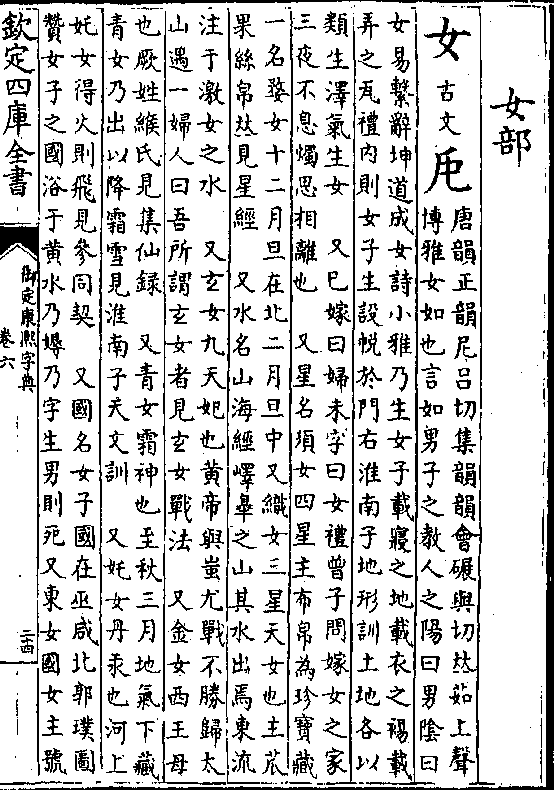 女部
女 古文
唐韻正韻尼呂切集韻韻會碾與切𠀤茹上聲
博雅女如也言如男子之教人之陽曰男陰曰
女易繫辭坤道成女詩小雅乃生女子載寢之地載衣之裼載
弄之瓦禮内則女子生設帨於門右淮南子地形訓土地各以
類生澤氣生女 又已嫁曰婦未字曰女禮曾子問嫁女之家
三夜不息燭思相離也 又星名須女四星主布帛為珍寶藏
一名婺女十二月旦在北二月旦中又織女三星天女也主苽
果絲帛𠀤見星經 又水名山海經嶧臯之山其水出焉東流
注于激女之水 又玄女九天妃也黄帝與蚩尤戰不勝歸太
山遇一婦人曰吾所謂玄女者見玄女戰法 又金女西王母
也厥姓緱氏見集仙録 又青女霜神也至秋三月地氣下藏
青女乃出以降霜雪見淮南子天文訓 又奼女丹汞也河上
奼女得火則飛見參同契 又國名女子國在巫咸北郭璞圖
贊女子之國浴于黄水乃娠乃字生男則死又東女國女主號
欽定四庫全書
御定康熙字典
卷六